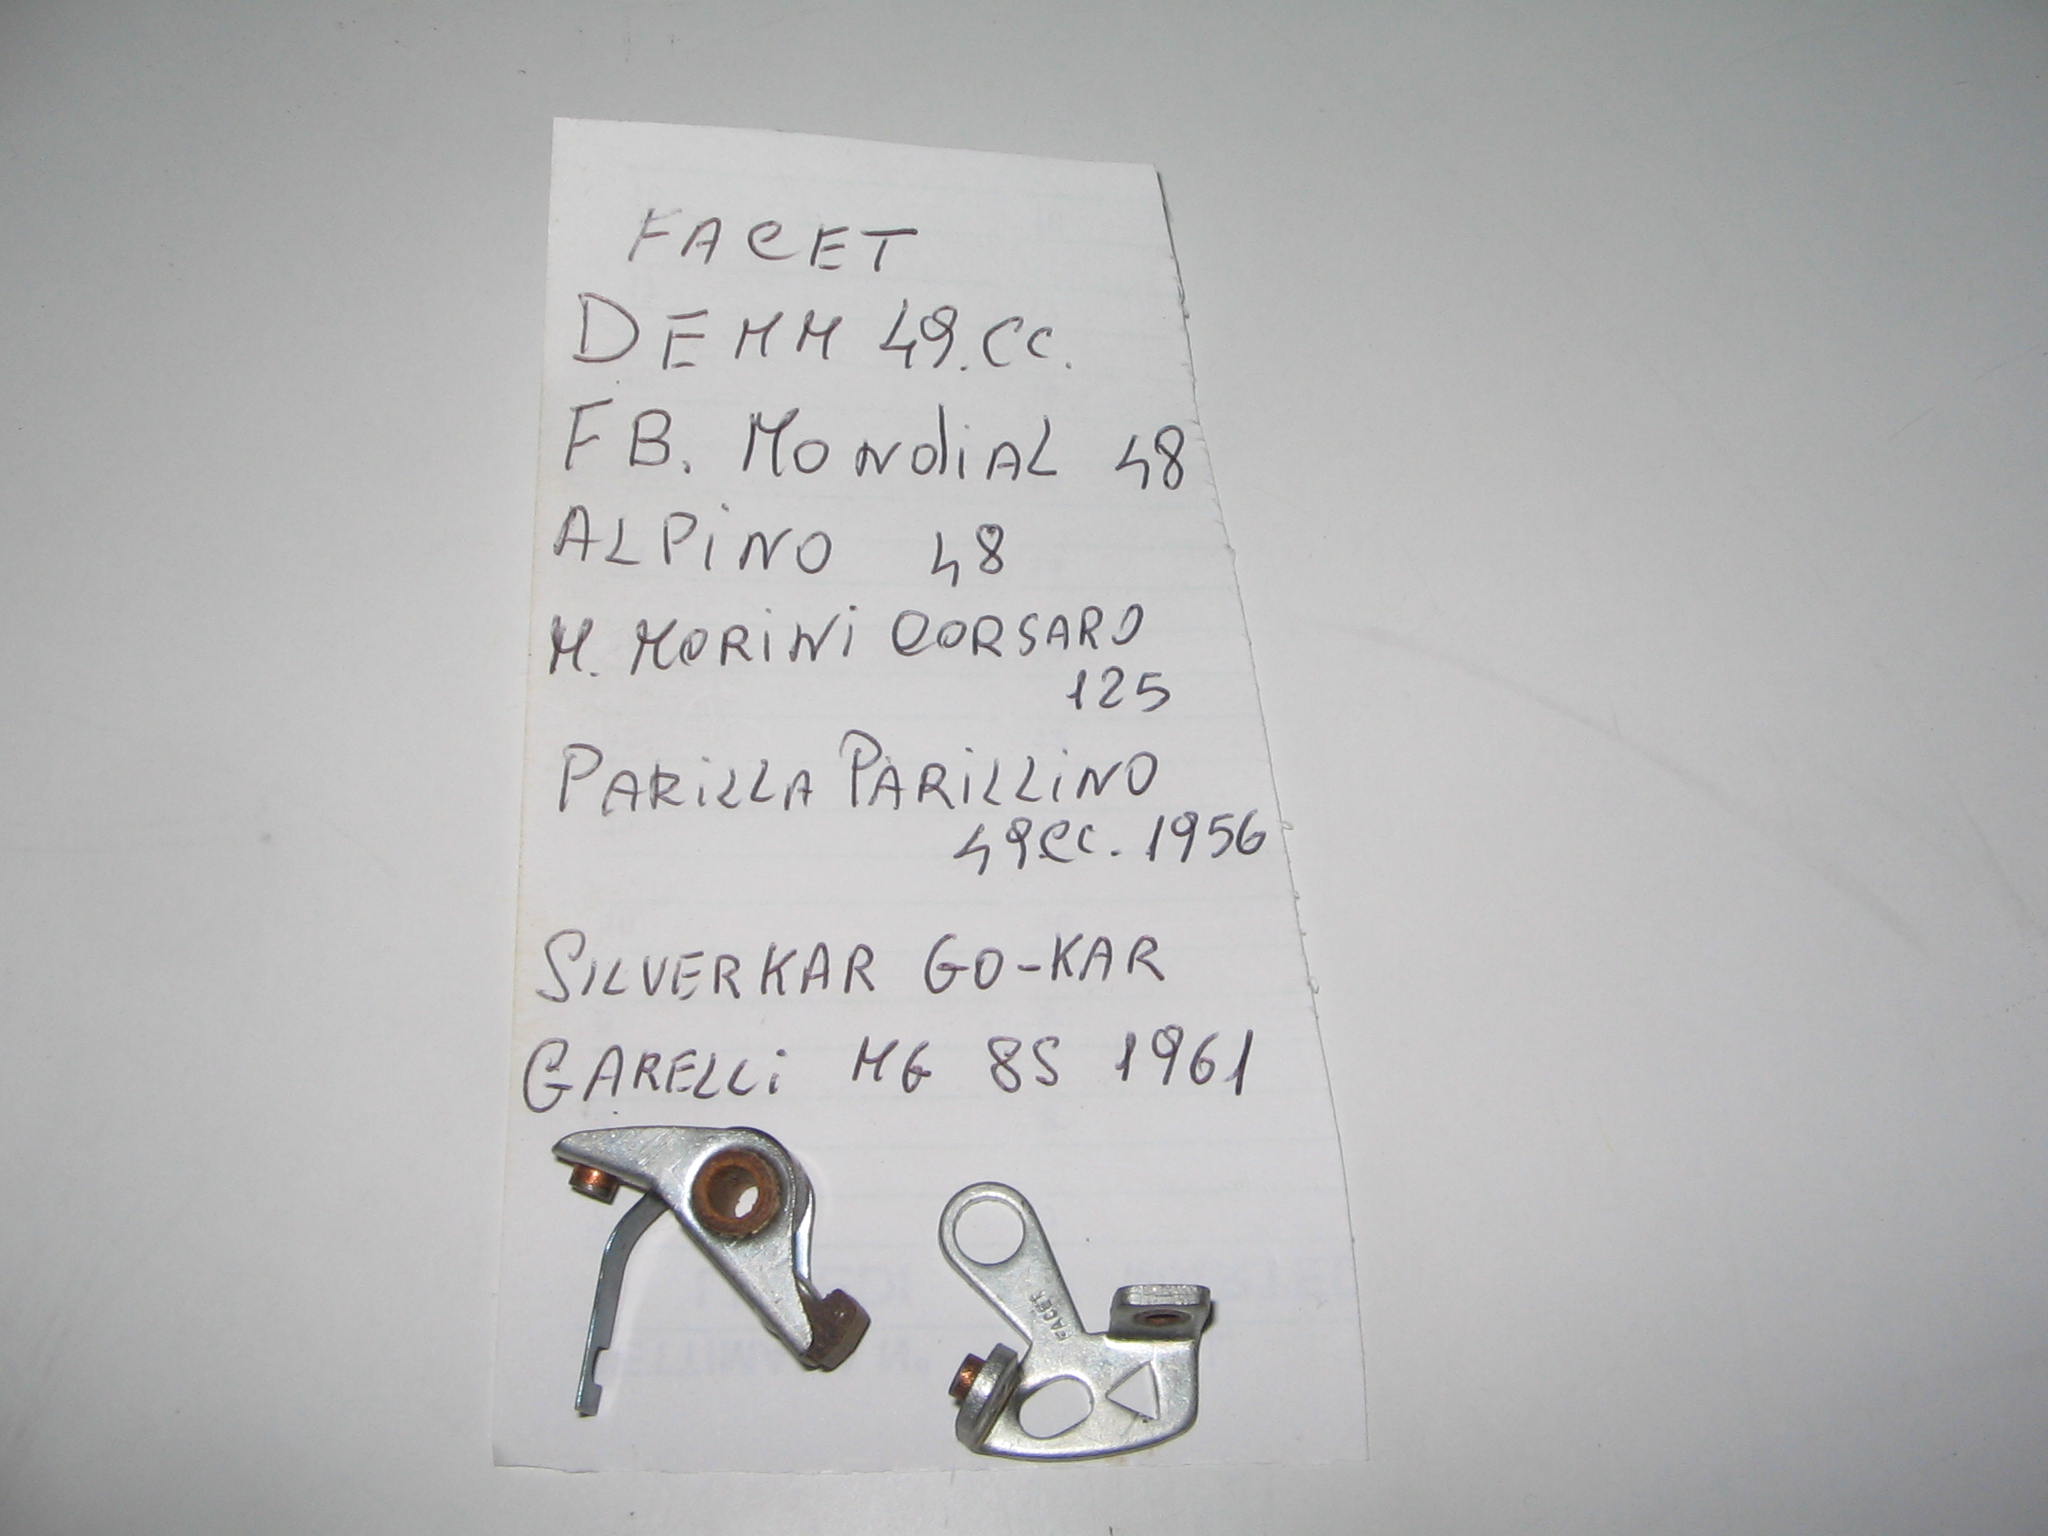 FACET
DEMM 49.CC.
FB. MONDIAL 48
ALPINO 48
M. MORINI CORSARO
125
PARILLA PARILLINO
49CC. 1956
SILVERKAR GO-KAR
GARELLI MG 8S 1961
FACET